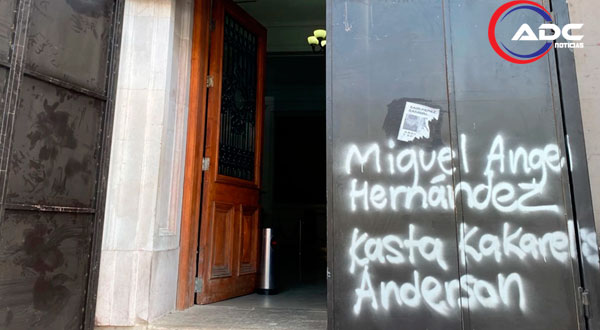 ADC
NOTICIAS
Miguel Angel
Hernández
Kasta Kakarels
Anderson